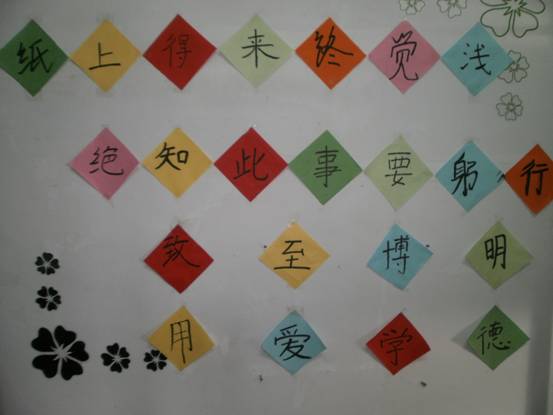 纸上得来终觉浅
绝知此事要躬行
明德
博学
至爱
致用